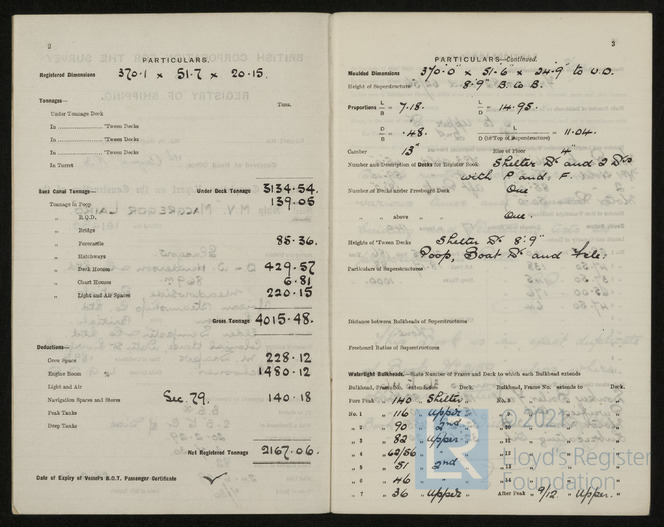 2
PARTICULARS.
Registered Dimensions 370.1 x 51.7 x 20.15.
Tonnages— Tons.
Under Tonnage Deck
In 'Tween Decks
In 'Tween Decks
In 'Tween Decks
In Turret
Suez Canal Tonnage— Under Deck Tonnage 3134.54.
Tonnage in Poop 139.05
" R.Q.D.
" Bridge
" Forecastle 85.36.
" Hatchways
" Deck Houses 429.57
" Chart Houses 6.81
" Light and Air Spaces 220.15
Gross Tonnage 4015.48.
Deductions—
Crew Space 228.12
Engine Room 1480.12
Light and Air
Navigation Spaces and Stores Sec. 79. 140.18
Peak Tanks
Deep Tanks
Net Registered Tonnage 2167.06.
Date of Expiry of Vessel's B.O.T. Passenger Certificate
3
PARTICULARS—Continued.
Moulded Dimensions 370'.0" x 51'.6" x 24'.9" to U.D.
Height of Superstructure 8'.9" B. to B.
Proportions L/B = 7.18. L/D = 14.95.
D/B = .48. L/D (to Top of Superstructure) = 11.04.
Camber 13" Rise of Floor 4"
Number and Description of Decks for Register Book Shelter Dk and 2 Dks
with P and F.
Number of Decks under Freeboard Deck One
" " above " " One.
Heights of 'Tween Decks Shelter Dk 8'.9"
Particulars of Superstructures Poop, Boat Dk and Fcle.
Distance between Bulkheads of Superstructures
Freeboard Ratios of Superstructures
Watertight Bulkheads.—State Number of Frame and Deck to which each Bulkhead extends
Bulkhead, Frame No. extends to Deck. Bulkhead, Frame No. extends to Deck.
Fore Peak " 140 " Shelter " No. 8 " "
No. 1 " 116 " Upper "
" 2 " 90 " 2nd " " 10 " "
" 3 " 82 " Upper "
" 4 " 62/56 " " 12
" 5 " 51 " 2nd "
" 6 " 46 " " " 14
" 7 " 36 " Upper " After Peak " 9/12 " Upper "
© 2021
Lloyd's Register
Foundation